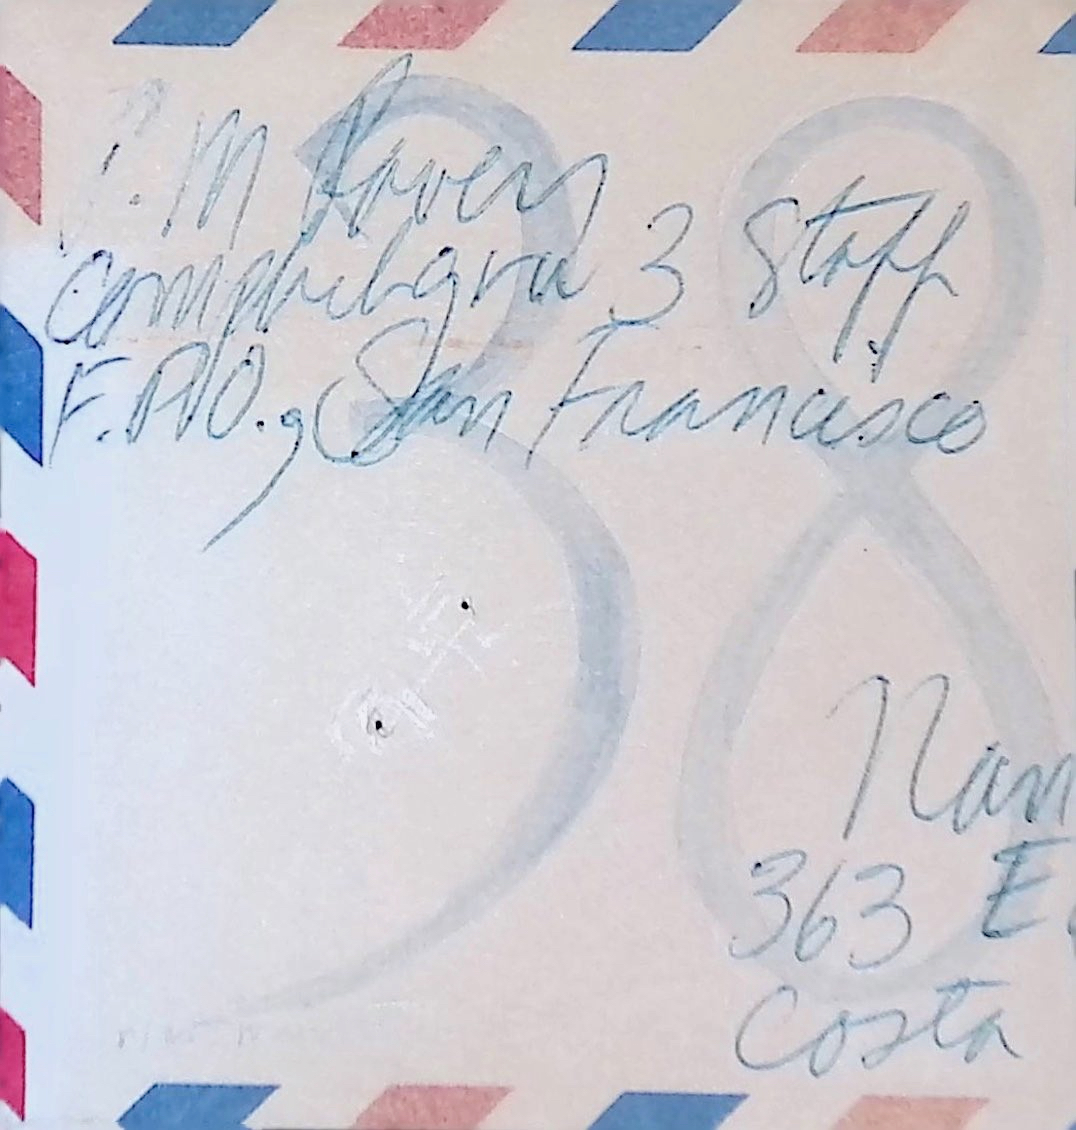 38
M
comphibgru 3 Staff
F.P.O., San Francisco
Nan
363 E
Costa